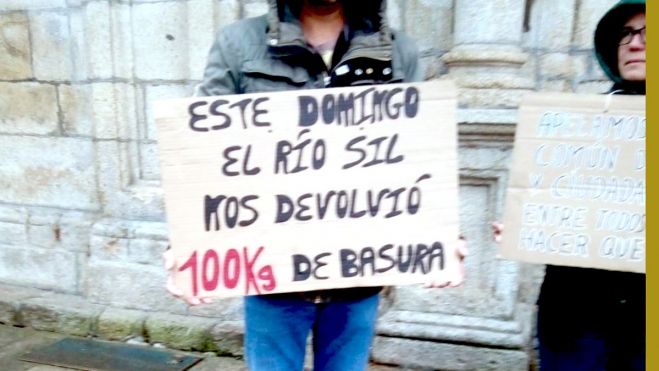 ESTE DOMINGO
EL RÍO SIL
NOS DEVOLVIÓ
100Kg DE BASURA
APELAMOS
COMÚN D
Y CIUDADA
ENTRE TODOS
HACER QUE